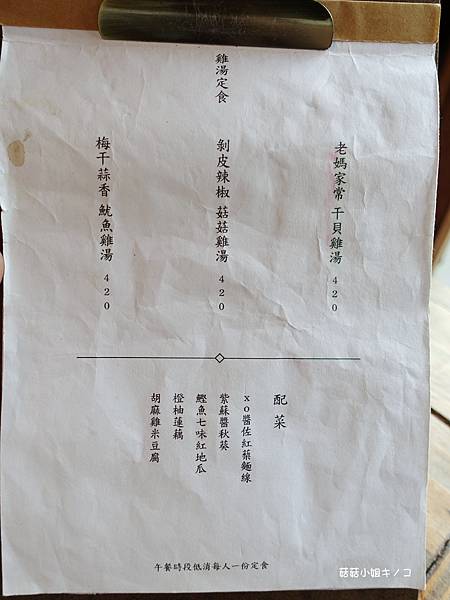 雞湯定食
老媽家常 干貝雞湯 420
剝皮辣椒 菇菇雞湯 420
梅干蒜香 魷魚雞湯 420
配菜
xo醬佐紅藜麵線
紫蘇醬秋葵
鰹魚七味紅地瓜
橙柚蓮藕
胡麻雞米豆腐
午餐時段低消每人一份定食
菇菇小姐キノコ